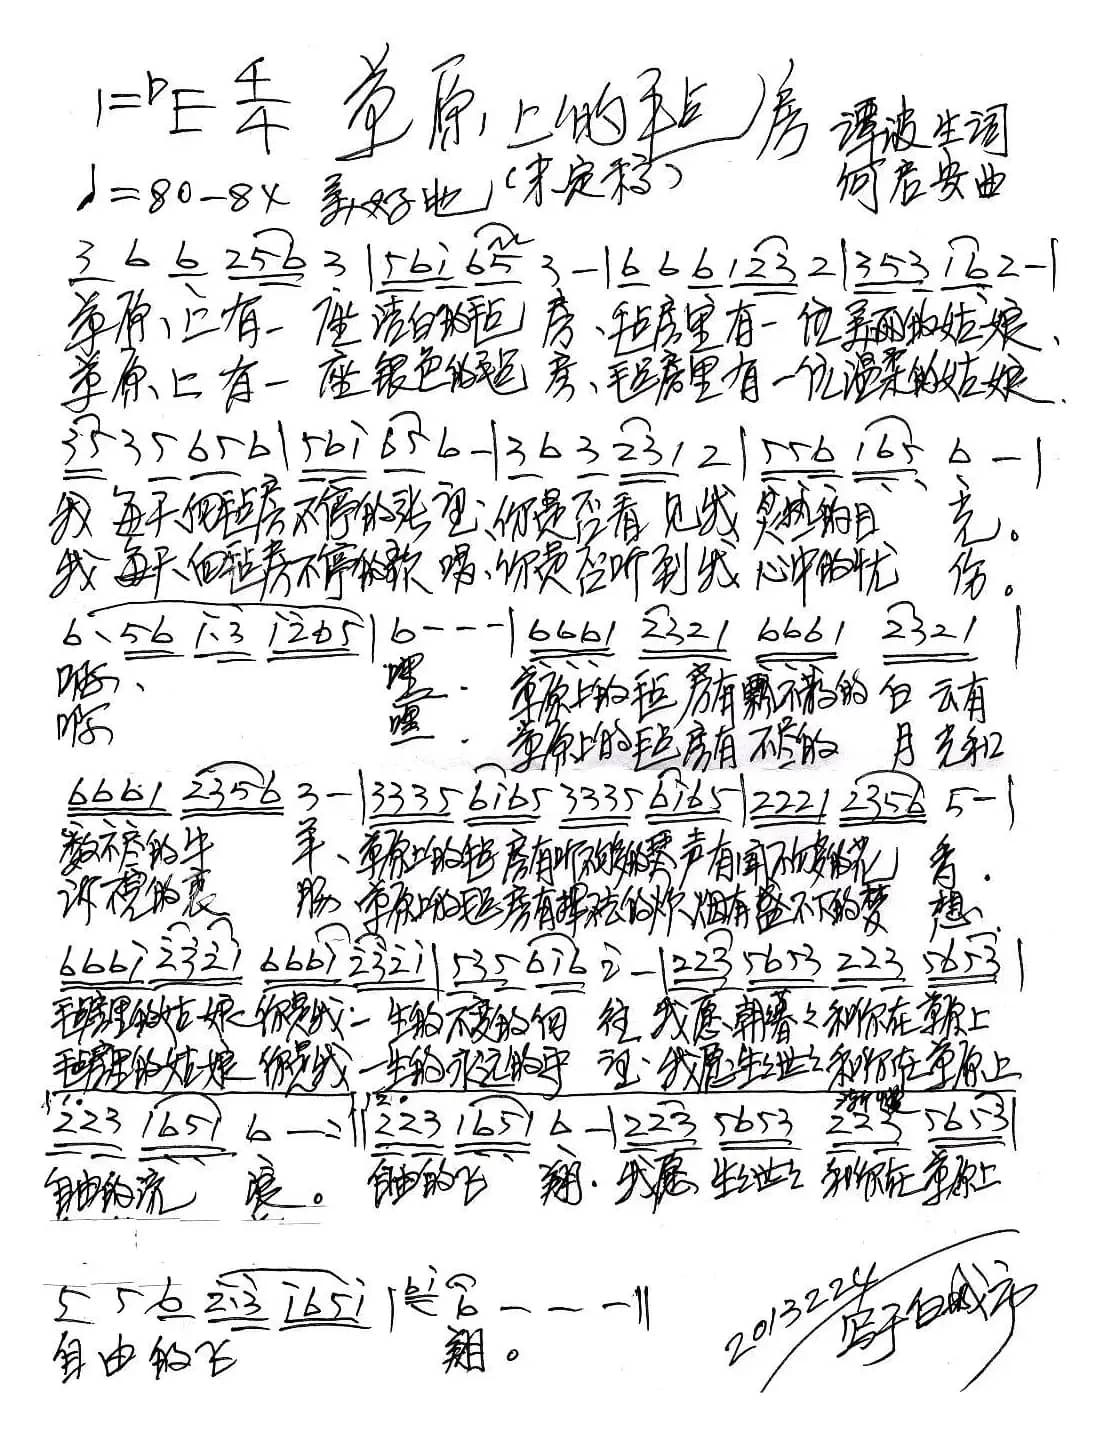 1=bE 4/4 草原上的毡房 谭波生词
♩=80-84 美好地 (未定稿) 何启安曲
3 6 6 256 3 | 561 65 3 - | 6 6 6 123 2 | 353 16 2 - |
草原上有一座洁白的毡房、毡房里有一位美丽的姑娘、
草原上有一座银色的毡房、毡房里有一位温柔的姑娘
35 35 656 | 561 65 6 - | 36 3 231 2 | 556 165 6 - |
我每天向毡房不停的张望、你是否看见我炙热的目光。
我每天向毡房不停的歌唱、你是否听到我心中的忧伤。
6· 56 1·3 1265 | 6 - - - | 6661 2321 6661 2321 |
啊、嘿 草原上的毡房有飘不散的白云有
啊 嘿 草原上的毡房有不尽的月光和
6661 2356 3 - | 3335 6165 3335 6165 | 2221 2356 5 - |
数不尽的牛羊、草原上的毡房有听不够的琴声有闻不够的花香.
诉不完的衷肠.草原上的毡房有挥不去的炊烟有盛不下的梦想.
6661 2321 6661 2321 | 535 616 2 - | 223 5653 223 5653 |
毡房里的姑娘你是我一生的不变的向往 我愿朝暮々和你在草原上
毡房里的姑娘你是我一生的永远的守望 我愿生々世々和你在草原上
1. 2. 渐慢
223 1651 6 - :|| 223 1651 6 - | 223 5653 223 5653 |
自由的流浪。自由的飞翔.我愿生々世々和你在草原上
5 5 6 2·3 1651 | 61 6 - - - ||
自由的飞翔。
2013224
写于白城市